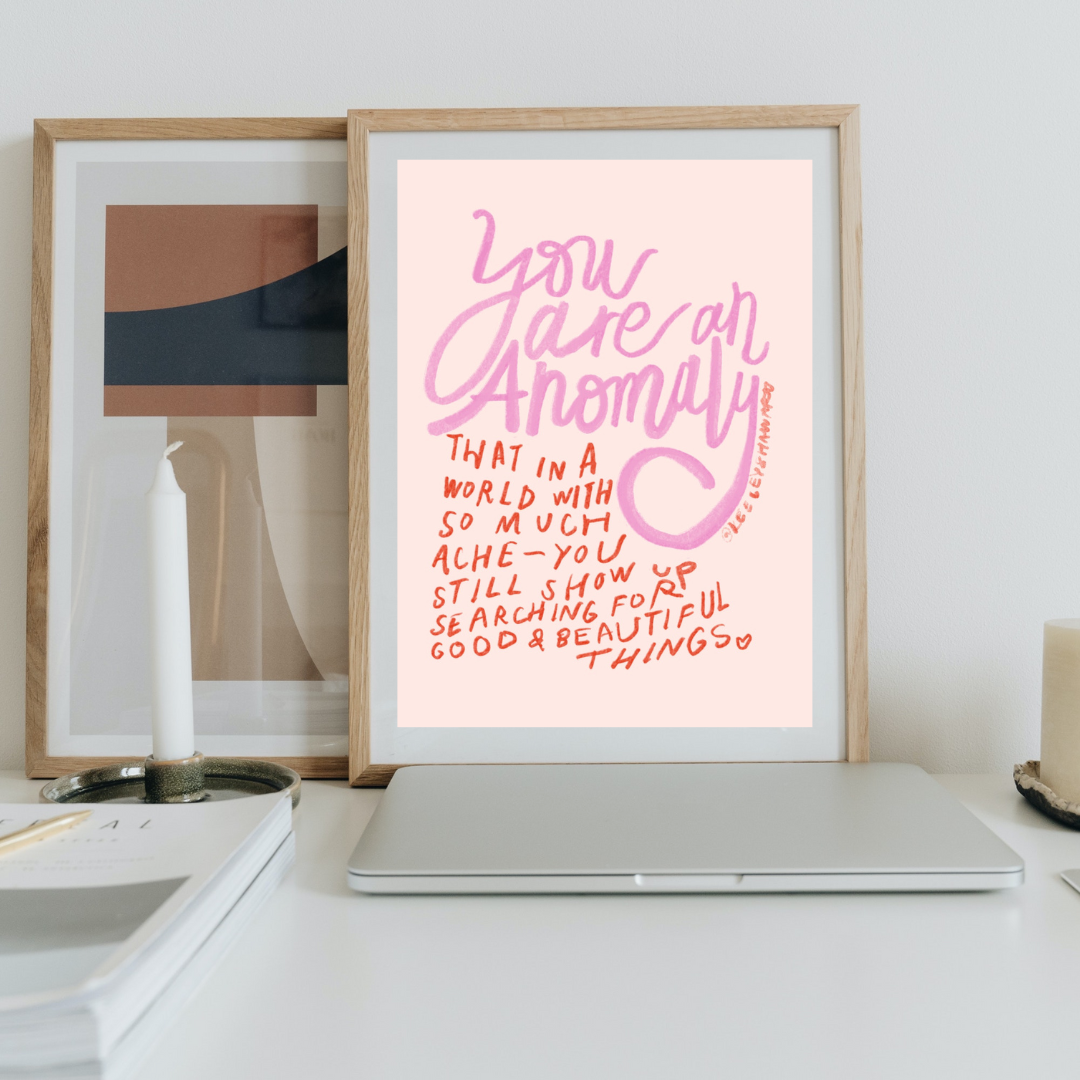 You
are an
Anomaly
THAT IN A
WORLD WITH
SO MUCH
ACHE—YOU
STILL SHOW UP
SEARCHING FOR
GOOD & BEAUTIFUL
THINGS